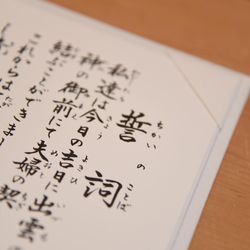 誓詞
私達は今日の吉日に出雲の
神の御前にて夫婦の契
結ぶことができまし
これからは